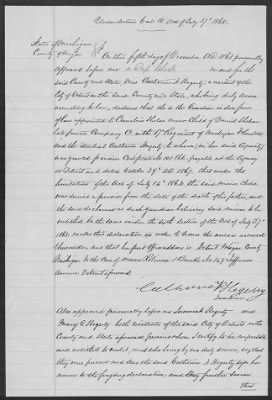 Under Section 6 of the Act of July 27th 1868.
State of Michigan
County of Wayne
On this fifth day of December A.D. 1868 personally
appeared before me a
said County and State, Mrs Catherine Hegerty, a resident of
the City of Detroit in the said County and State, who being duly sworn
according to law, declares that she is the Guardian in due form
of law appointed to Cornelius Shelan minor Child of Daniel Shelan
late private Company in the 17th Regiment of Michigan Volunteers
and the identical Catherine Hegerty to whom, in her said Capacity,
was granted pension Certificate No. 101 payable at the Agency
at Detroit and dated October 29th 1867, that under the
limitation of the Act of July 14th 1862 the said minor Child
was denied a pension from the date of the death of his father, and that
she now declares as such guardian believing said minor to be
entitled to the same under the sixth Section of the Act of July 27th
1868 makes this declaration in order to have the arrears secured
thereunder and that her post office address is Detroit Wayne County
Michigan to the care of Jefferson
Avenue Detroit aforesaid
Catherine Hegerty
Guardian
Also appeared personally before me Hegerty and
Mary E. Hegerty both residents of the said City of Detroit in the
County and State aforesaid persons whom I certify to be respectable
and entitled to credit, and who being by me duly sworn, say that
they were present and saw the said Catherine Hegerty sign her
name to the foregoing declaration, and they further swear
that